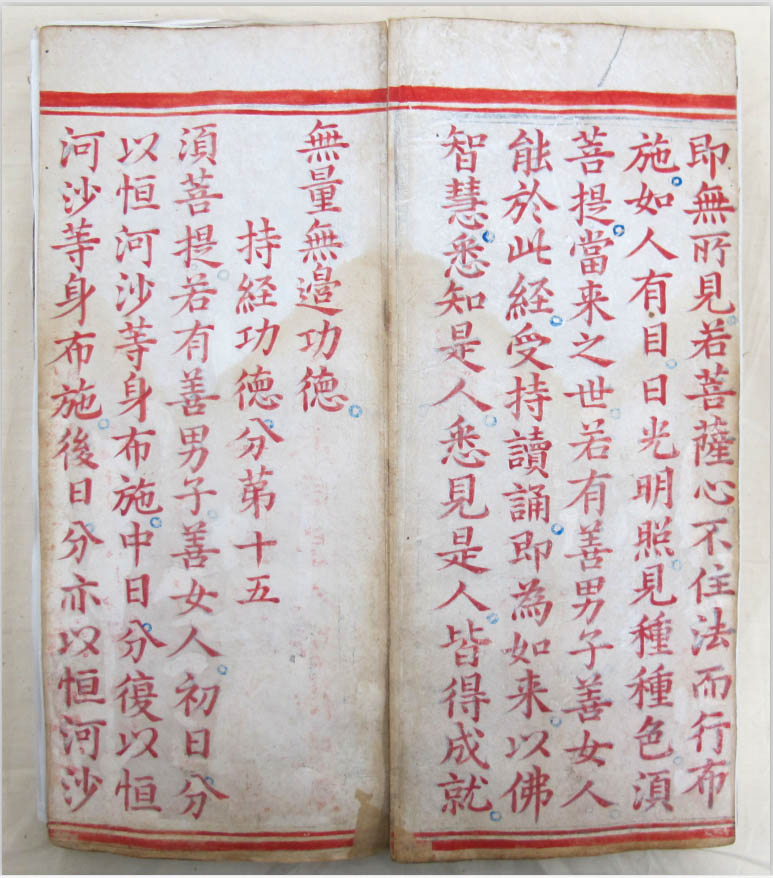 即無所見若菩薩心不住法而行布
施如人有目日光明照見種種色湏
菩提當来之世若有善男子善女人
能於此経受持讀誦即為如来以佛
智慧悉知是人悉見是人皆得成就
無量無邉功德
持経功德分苐十五
湏菩提若有善男子善女人初日分
以恒河沙等身布施中日分復以恒
河沙等身布施後日分亦以恒河沙